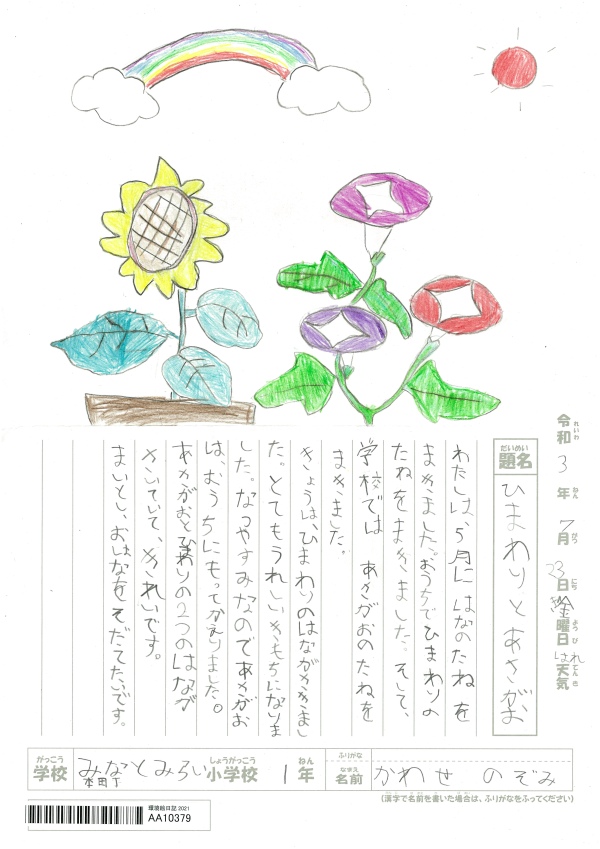 令和3年7月23日金曜日はれ天気
れいわ ねん がつ にち ようび てんき
だいめい
題名
ひまわりとあさがお
わたしは、5月にはなのたねを
まきました。おうちでひまわりの
たねをまきました。そして、
学校では あさがおのたねを
まきました。
きょうは、ひまわりのはながさきまし
た。とてもうれしいきもちになりま
した。なつやすみなのであさがお
は、おうちにもってかえりました。
あさがおとひまわりの2つのはなが
さいていて、きれいです。
まいとし、おはなをそだてたいです。
がっこう しょうがっこう ねん
学校 みなとみらい本町小学校 1年
ふりがな
なまえ
名前 かわせ のぞみ
(漢字で名前を書いた場合は、ふりがなをふってください)
環境絵日記 2021
AA10379